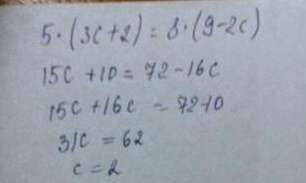 5·(3c+2)=8·(9-2c)
15c+10=72-16c
15c+16c=72-10
31c=62
c=2